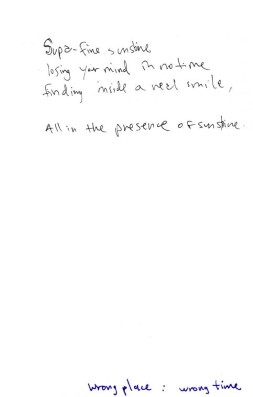 Supa-fine sunshine
losing your mind in no time
finding inside a real smile,
All in the presence of sunshine.
wrong place : wrong time